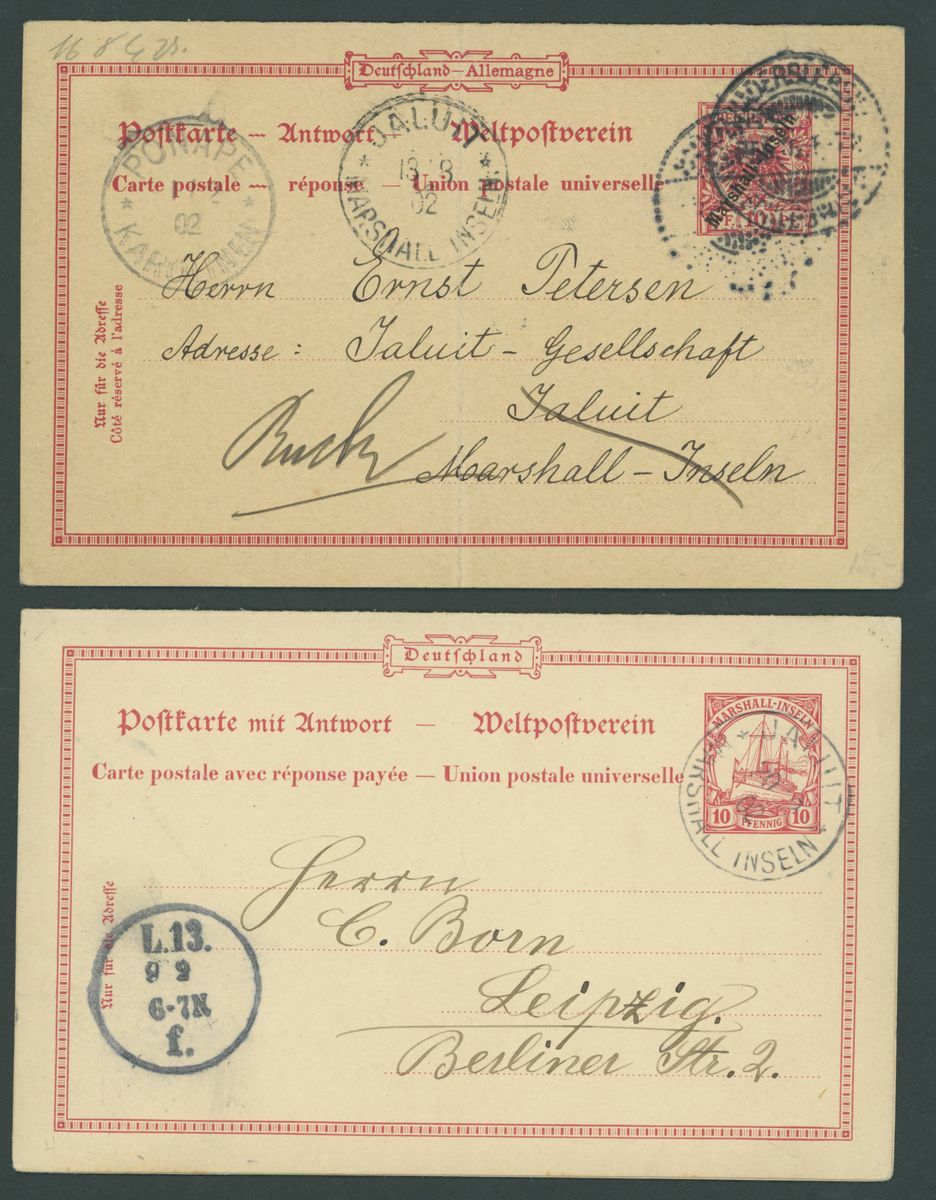 Deutschland—Allemagne
Postkarte — Antwort Weltpostverein
Carte postale — réponse — Union postale universelle
PONAPE
02
KAROLINEN
JALUIT
02
MARSHALL INSELN
Marshall-Inseln
Herrn Ernst Petersen
Adresse: Jaluit-Gesellschaft
Jaluit
Marshall-Inseln
Nur für die Adresse
Côté réservé à l'adresse
Deutschland
Postkarte mit Antwort — Weltpostverein
Carte postale avec réponse payée — Union postale universelle
MARSHALL-INSELN
10 PFENNIG 10
JALUIT
MARSHALL INSELN
Herrn
C. Born
Leipzig.
Berliner Str. 2.
Nur für die Adresse
L.13.
9 9
6-7N
f.